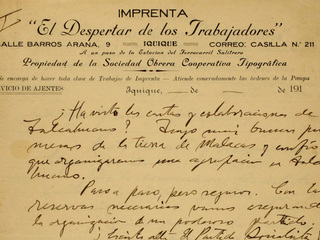 IMPRENTA
"El Despertar de los Trabajadores"
CALLE BARROS ARANA, 9 IQUIQUE CORREO: CASILLA N.º 211
A un paso de la Estacion del Ferrocarril Salitrero
Propiedad de la Sociedad Obrera Cooperativa Tipográfica
Se encarga de hacer toda clase de Trabajos de Imprenta — Atiende esmeradamente las órdenes de la Pampa
SERVICIO DE AJENTES Iquique, de de 191
¿Ha visto las cartas y colaboraciones de
Talcahuano? Tengo mui buenas
de la tierra de y confío
que organizaremos una agrupacion en
Paso a paso, pero seguros. Con las
reservas necesarias vamos asegurando
la organizacion de un poderoso partido.
el Partido Socialista